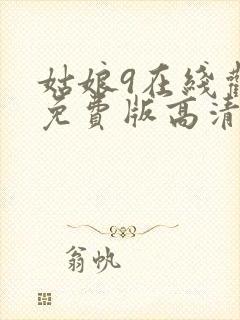 姑娘9在綫
免費版高清
翁帆